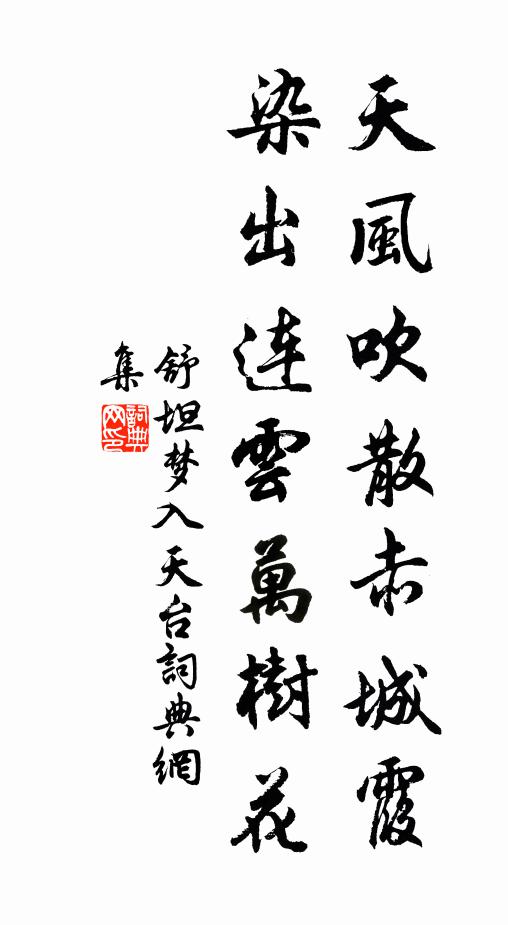 天風吹散赤城霞
染出連雲萬樹花
舒坦梦入天台詞典網
集
詞典网印